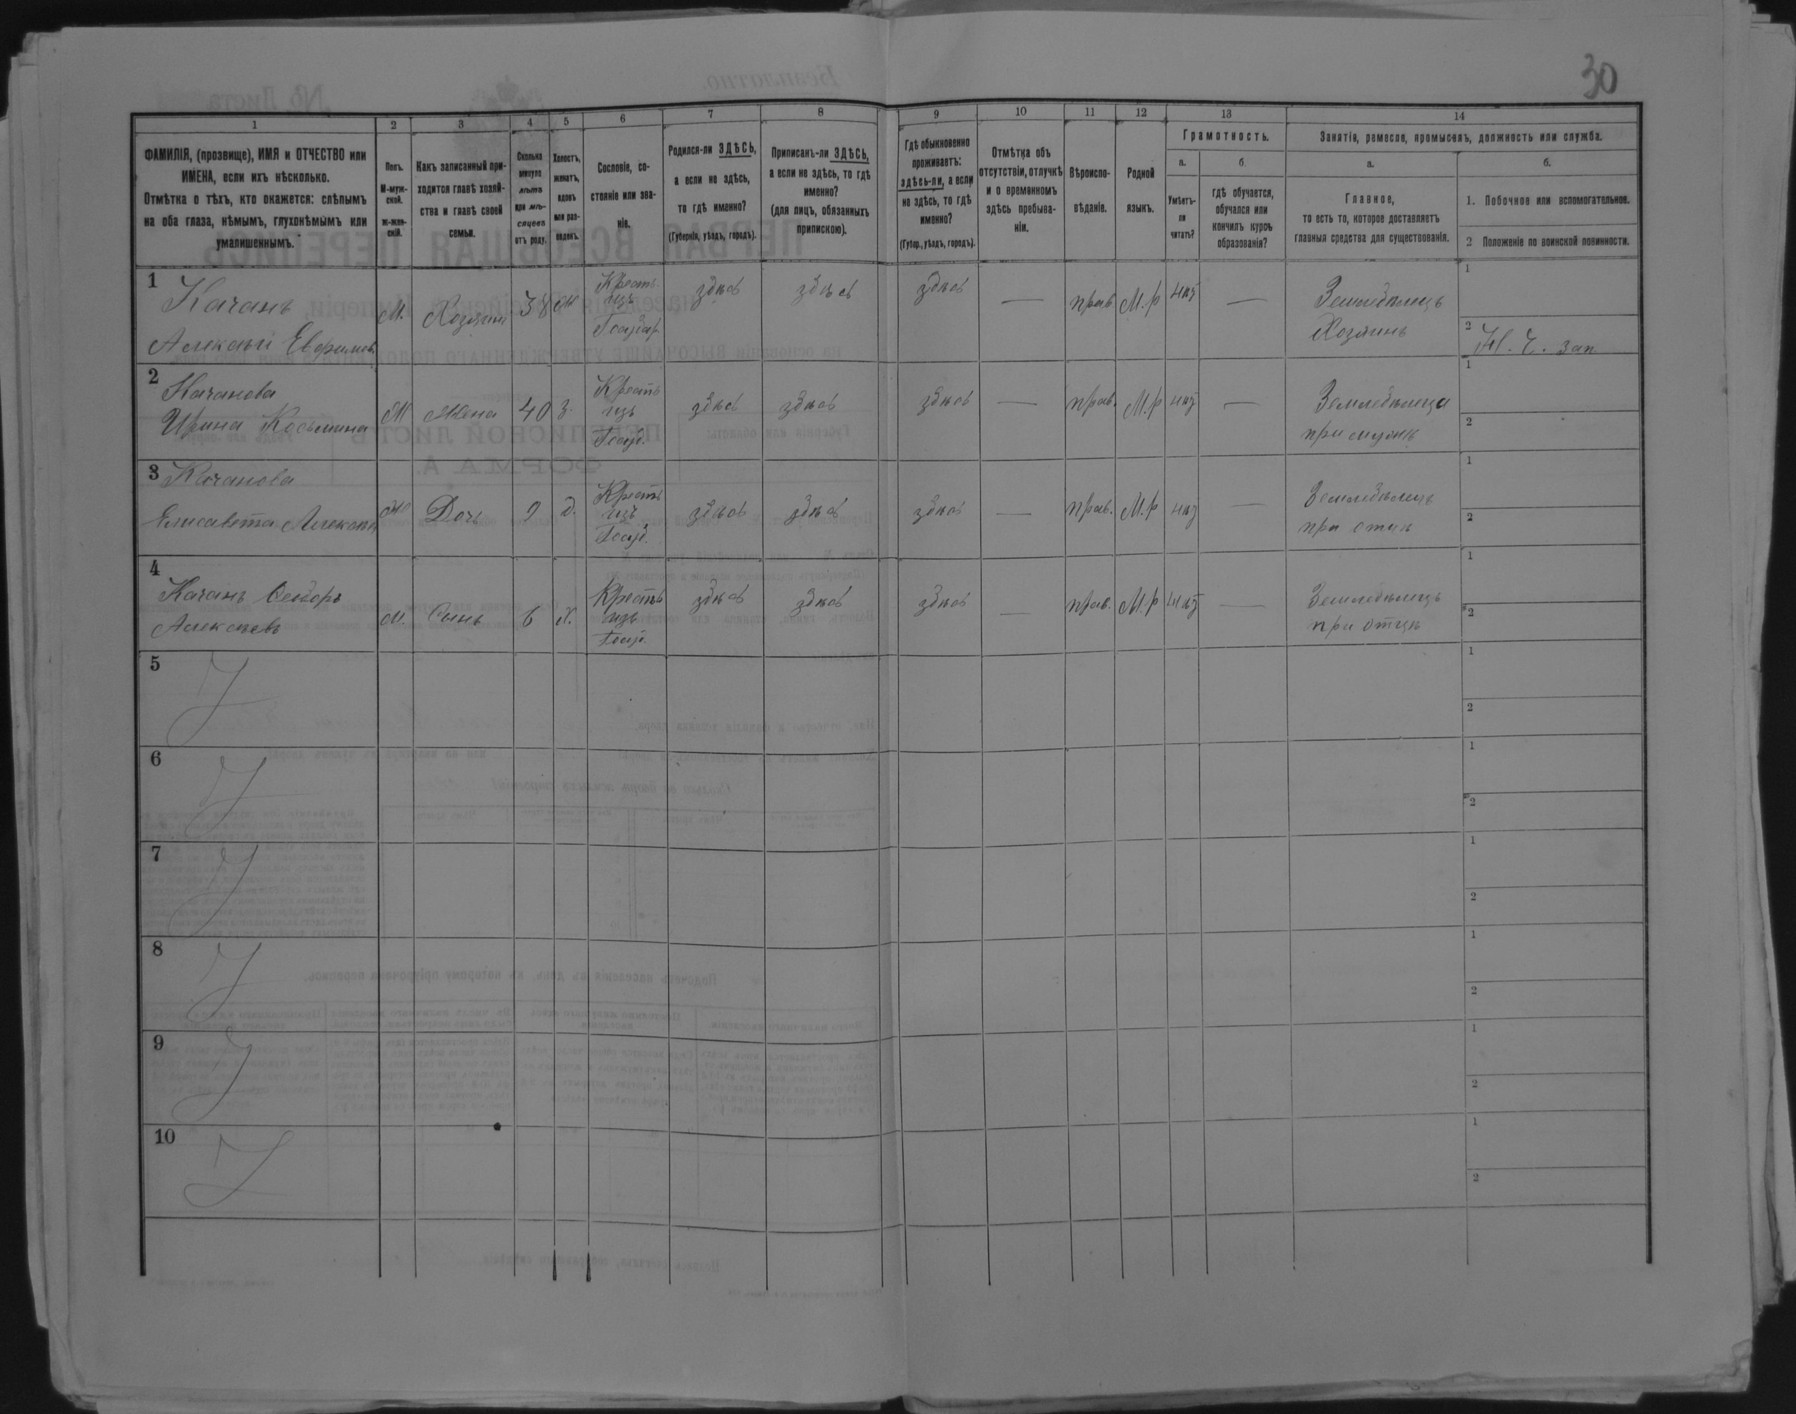 30
1 2 3 4 5 6 7 8 9 10 11 12 13 14
ФАМИЛІЯ, (прозвище), ИМЯ и ОТЧЕСТВО или
ИМЕНА, если ихъ нѣсколько.
Отмѣтка о тѣхъ, кто окажется: слѣпымъ
на оба глаза, нѣмымъ, глухонѣмымъ или
умалишеннымъ.
Полъ.
М-муж-
ской.
Ж-жен-
скій.
Какъ записанный при-
ходится главѣ хозяй-
ства и главѣ своей
семьи.
Сколько
минуло
лѣтъ
или мѣ-
сяцевъ
отъ роду.
Холостъ,
женатъ,
вдовъ
или раз-
веденъ.
Сословіе, со-
стояніе или зва-
ніе.
Родился-ли ЗДѢСЬ,
а если не здѣсь,
то гдѣ именно?
(Губернія, уѣздъ, городъ).
Приписанъ-ли ЗДѢСЬ,
а если не здѣсь, то гдѣ
именно?
(для лицъ, обязанныхъ
припискою).
Гдѣ обыкновенно
проживаетъ:
здѣсь-ли, а если
не здѣсь, то гдѣ
именно?
(Губер., уѣздъ, городъ).
Отмѣтка объ
отсутствіи, отлучкѣ
и о временномъ
здѣсь пребыва-
ніи.
Вѣроиспо-
вѣданіе.
Родной
языкъ.
Грамотность.
а.
Умѣетъ-
ли
читать?
б.
гдѣ обучается,
обучался или
кончилъ курсъ
образованія?
Занятія, ремесло, промыселъ, должность или служба.
а.
Главное,
то есть то, которое доставляетъ
главныя средства для существованія.
б.
1. Побочное или вспомогательное.
2 Положеніе по воинской повинности.
1
Качанъ
Алексѣй Ефимов.
М.
Хозяинъ
38
ж
Крест.
изъ
Государ.
здѣсь
здѣсь
здѣсь
—
прав
М.р
нѣтъ
—
Земледѣлецъ
Хозяинъ
1
2
2
Качанова
Ирина Косьмина
Ж
Жена
40
з.
Крестъ
изъ
Госуд.
здѣсь
здѣсь
здѣсь
—
прав.
М.р
нѣтъ
—
Земледѣлица
при мужѣ
1
2
3
Качанова
Елисавета Алексѣев
Ж
Дочь
9
д.
Крестъ
изъ
Госуд.
здѣсь
здѣсь
здѣсь
—
прав.
М.р
нѣтъ
—
Земледѣлецъ
при отцѣ
1
2
4
Качанъ Ѳеодоръ
Алексѣевъ
М.
Сынъ
6
х.
Крестъ
изъ
Госуд.
здѣсь
здѣсь
здѣсь
—
прав.
М.р
нѣтъ
—
Земледѣлецъ
при отцѣ
1
2
5
1
2
6
1
2
7
1
2
8
1
2
9
1
2
10
1
2